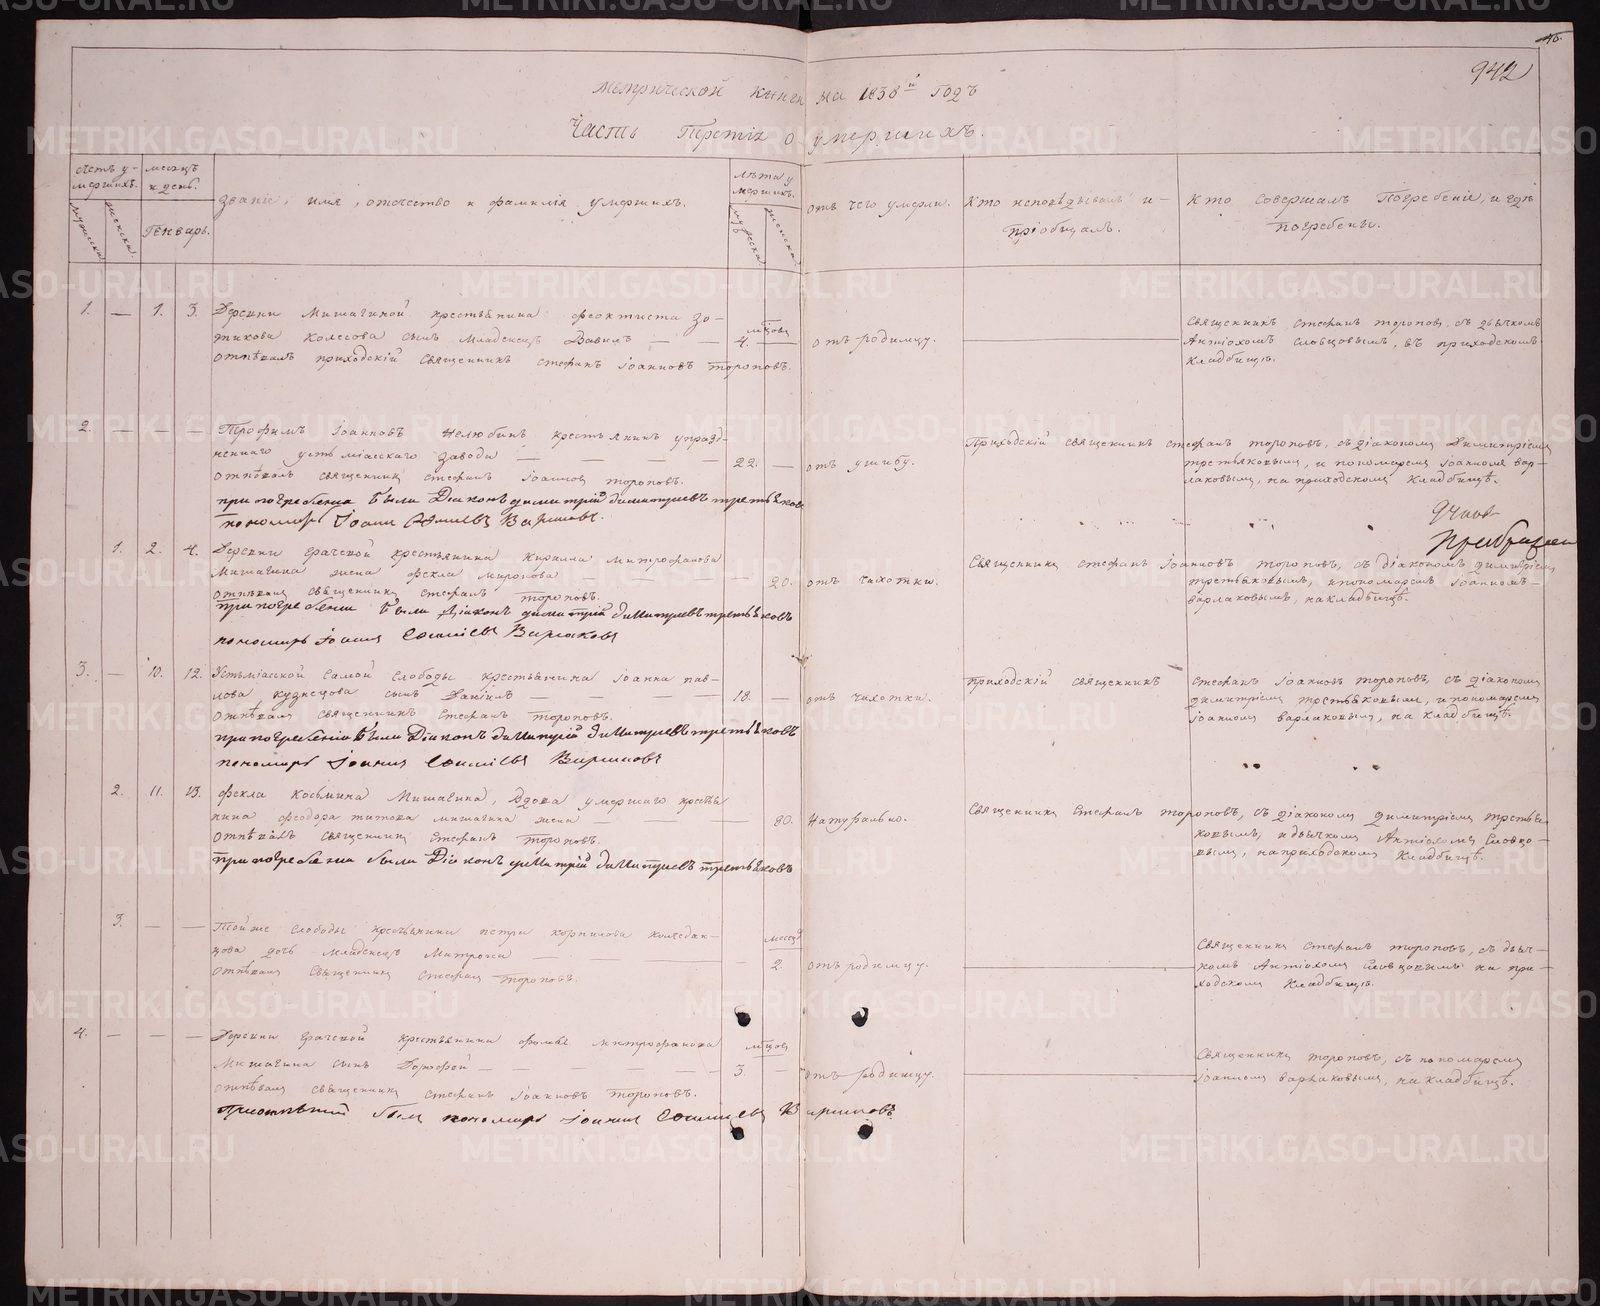 40.
942
Метрической книги на 1838й годъ
Часть Третія о умершихъ.
Счетъ умершихъ.
мужеска
женска
месяцъ и день.
Генварь.
Званіе, имя, отечество и фамилія умершихъ.
Лѣта умершихъ.
мужеска
женска
отъ чего умерли.
Кто исповѣдывалъ и пріобщалъ.
Кто совершалъ Погребеніе, и гдѣ погребены.
1. — 1. 3.
Деревни Мишагиной крестьянина Феоктиста Зо-
тикова Колесова сынъ Младенецъ Вавилъ — —
отпѣвалъ приходскій священникъ стефанъ Іоанновъ тороповъ.
мѣсяцов
4.
отъ родимцу.
Священникъ Стефанъ тороповъ, съ дьячкомъ
Антіохомъ Словцовымъ, въ приходскомъ
Кладбищѣ.
2. — — —
Трофимъ Іоанновъ Нелюбинъ крестьянинъ упразд-
неннаго усть міасскаго завода —
отпѣвалъ священникъ стефанъ Іоанновъ тороповъ.
при погребении были Діаконъ димитрій димитриевъ третьяковъ
пономарь Іоаннъ Варлаковъ.
22. —
отъ ушибу.
Приходскій священникъ стефанъ тороповъ, съ діакономъ Димитріемъ
третьяковымъ, и пономаремъ Іоанномъ вар-
лаковымъ, на приходскомъ Кладбищѣ.
1. 2. 4.
Деревни Грачевой крестьянина Кирилла митрофанова
Мишагина жена Фекла миронова —
отпѣвалъ священникъ стефанъ тороповъ.
при погребении были Діаконъ димитрій димитриевъ третьяковъ
пономарь Іоаннъ Варлаковъ
— 20.
отъ чихотки.
Священникъ Стефанъ Іоанновъ тороповъ, съ діакономъ димитріемъ
третьяковымъ, и пономаремъ Іоанномъ
варлаковымъ, на кладбищѣ.
3. — 10. 12.
Устьміасской Самой Слободы крестьянина Іоанна пав-
лова кузнецова сынъ Даніилъ —
отпѣвалъ священникъ Стефанъ тороповъ.
при погребении были Діаконъ димитрій димитриевъ третьяковъ
пономарь Іоаннъ Варлаковъ
18. —
отъ чихотки.
приходскій священникъ Стефанъ Іоанновъ тороповъ, съ діакономъ
димитріемъ третьяковымъ, и пономаремъ
Іоанномъ варлаковымъ, на кладбищѣ.
2. 11. 13.
Фекла Козьмина Мишагина, Вдова умершаго кресть
нина Феодора титова мишагина жена —
отпѣвалъ священникъ Стефанъ тороповъ.
при погребении были Діаконъ димитрій димитриевъ третьяковъ
80.
Натурально.
Священникъ Стефанъ тороповъ, съ діакономъ димитріемъ третья
ковымъ, и дьячкомъ Антіохомъ Словцо-
вымъ, на приходскомъ Кладбищѣ.
3. — —
Тойже Слободы крестьянина петра корнилова
дочь младенецъ Митрона —
отпѣвалъ Священникъ Стефанъ тороповъ.
месец
2.
отъ родимцу.
Священникъ Стефанъ тороповъ, съ дьяч-
комъ Антіохомъ Словцовымъ на при-
ходскомъ Кладбищѣ.
4. — — —
Деревни Грачевой крестьянина Фомы митрофанова
Мишагина сынъ Дорофей — —
отпѣвалъ священникъ стефанъ Іоанновъ тороповъ.
При отпѣтии былъ пономарь Іоаннъ Варлаковъ
мѣсяцов
3. —
отъ родимцу.
Священникъ тороповъ, съ пономаремъ
Іоанномъ варлаковымъ, на кладбищѣ.
METRIKI.GASO-URAL.RU